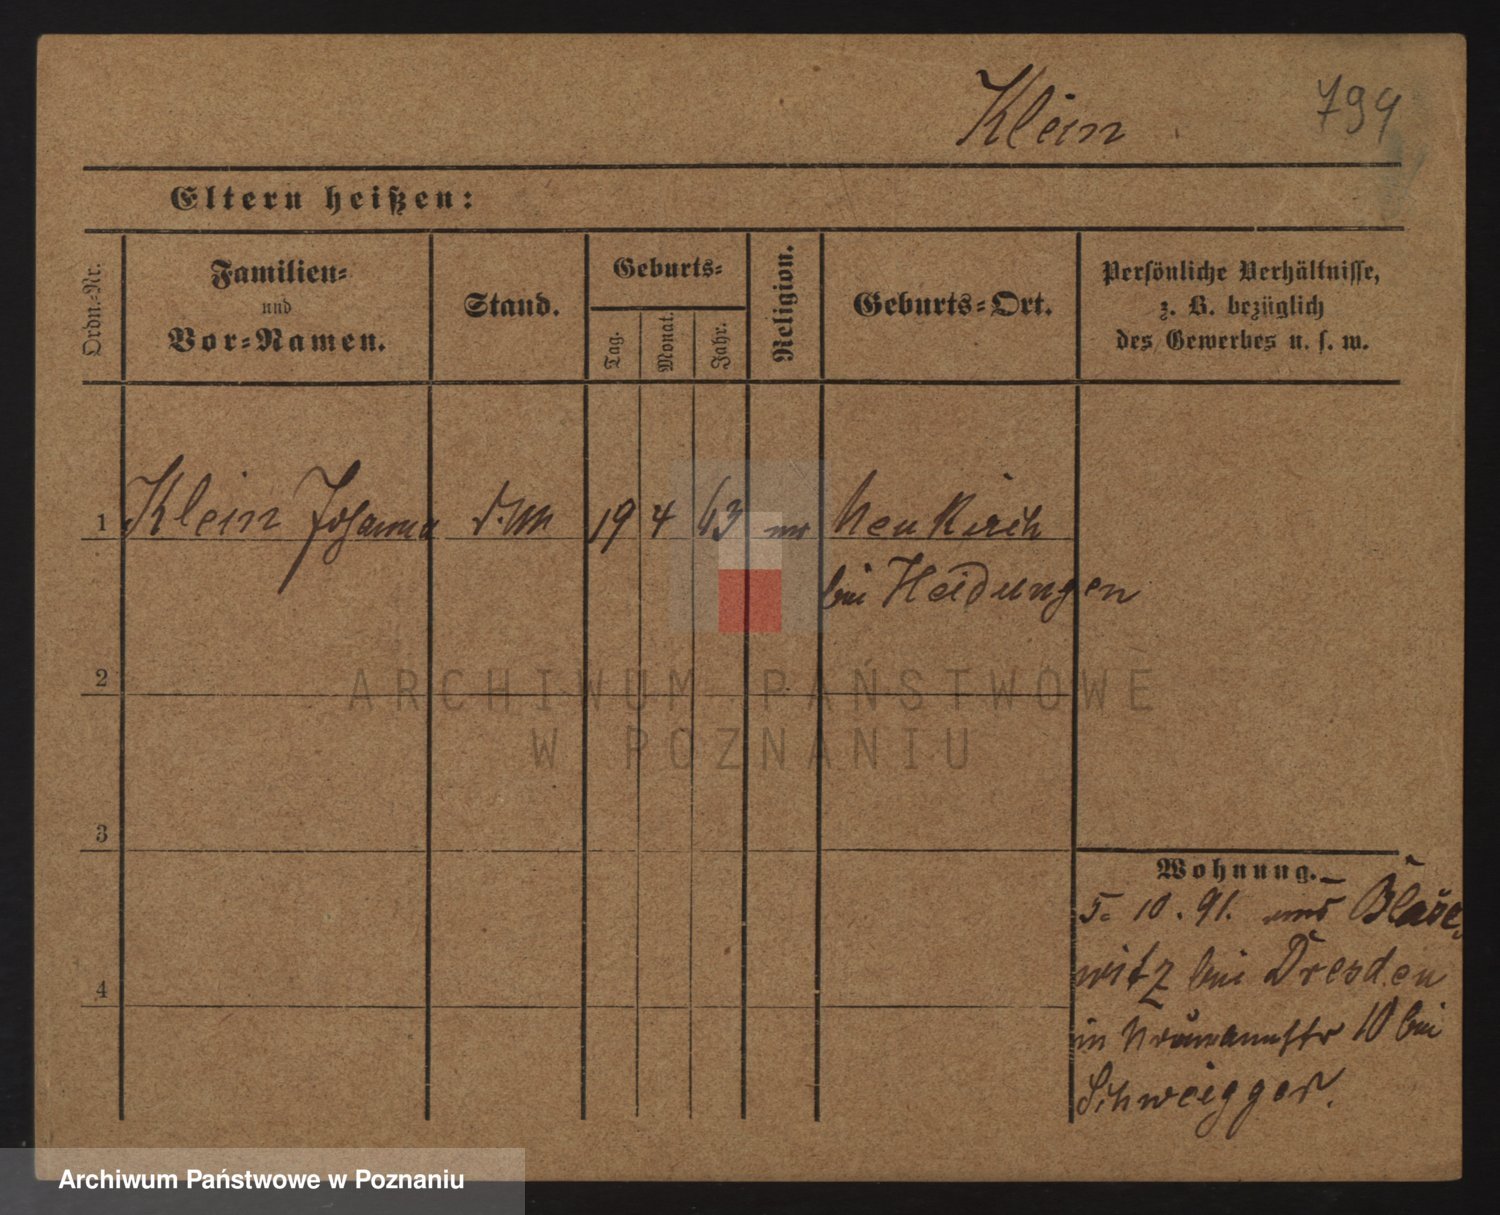 Klein 799
Eltern heißen:
Ordn.-Nr.
Familien-
und
Vor-Namen.
Stand.
Geburts-
Tag.
Monat.
Jahr.
Religion.
Geburts-Ort.
Persönliche Verhältnisse,
z. B. bezüglich
des Gewerbes u. s. w.
1 Klein Johanna 19 4 63 Neukirch
bei Heidungen
2
3
4
Wohnung.
5. 10. 91. aus Blase
witz bei Dresden
in 10 bei
Schweigger.
ARCHIWUM PAŃSTWOWE
W POZNANIU
Archiwum Państwowe w Poznaniu